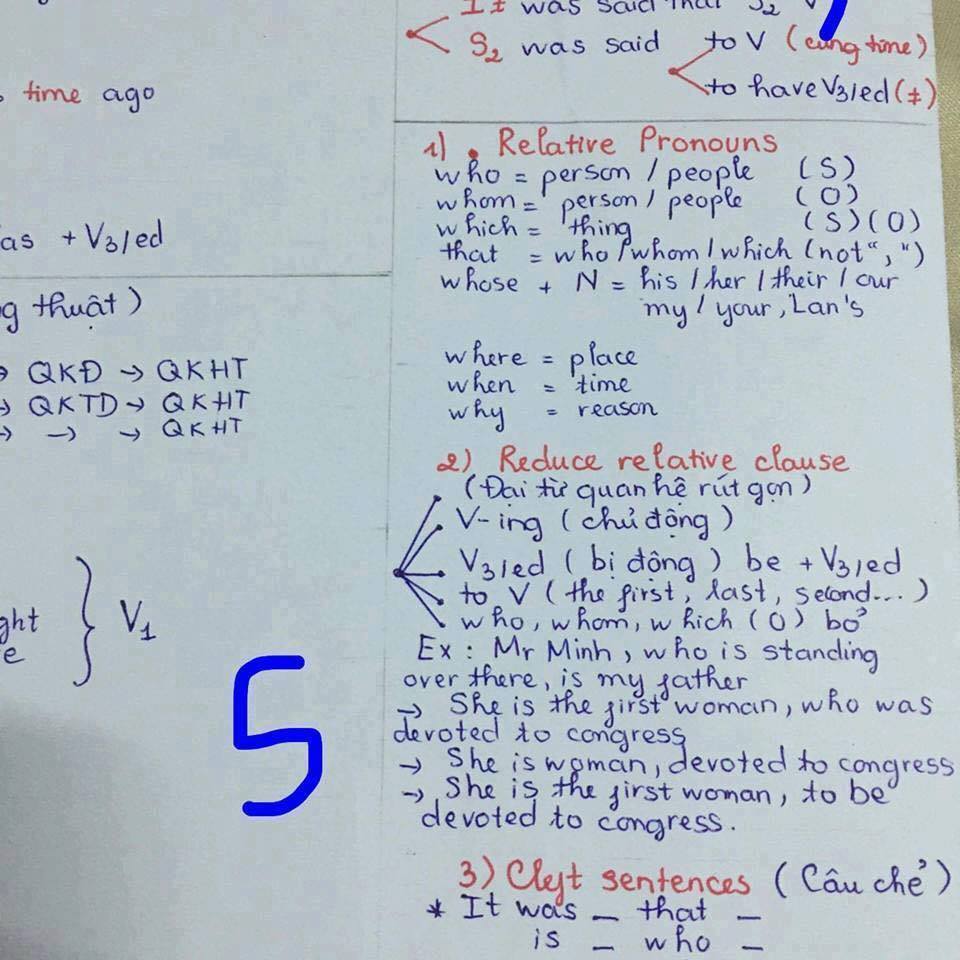 time ago
as + V3/ed
g thuật)
→ QKĐ → QKHT
→ QKTD → QKHT
→ → → QKHT
ght
e
} V1
5
It was said that S2 V
S2 was said to V (cùng time)
to have V3/ed (≠)
1) . Relative Pronouns
who = person / people (S)
whom = person / people (O)
which = thing (S) (O)
that = who / whom / which (not “ , “)
whose + N = his / her / their / our
my / your, Lan's
where = place
when = time
why = reason
2) Reduce relative clause
(Đại từ quan hệ rút gọn)
V-ing (chủ động)
V3/ed (bị động) be + V3/ed
to V (the first, last, second...)
who, whom, which (O) bỏ
Ex : Mr Minh, who is standing
over there, is my father
→ She is the first woman, who was
devoted to congress
→ She is woman, devoted to congress
→ She is the first woman, to be
devoted to congress.
3) Cleft sentences (Câu chẻ)
* It was _ that _
is _ who _